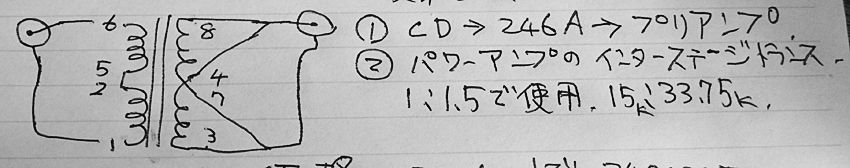 6
5
2
1
8
4
7
3
① CD→246A→プリアンプ.
② パワーアンプのインターステージトランス.
1:1.5で使用. 15K:33.75K.